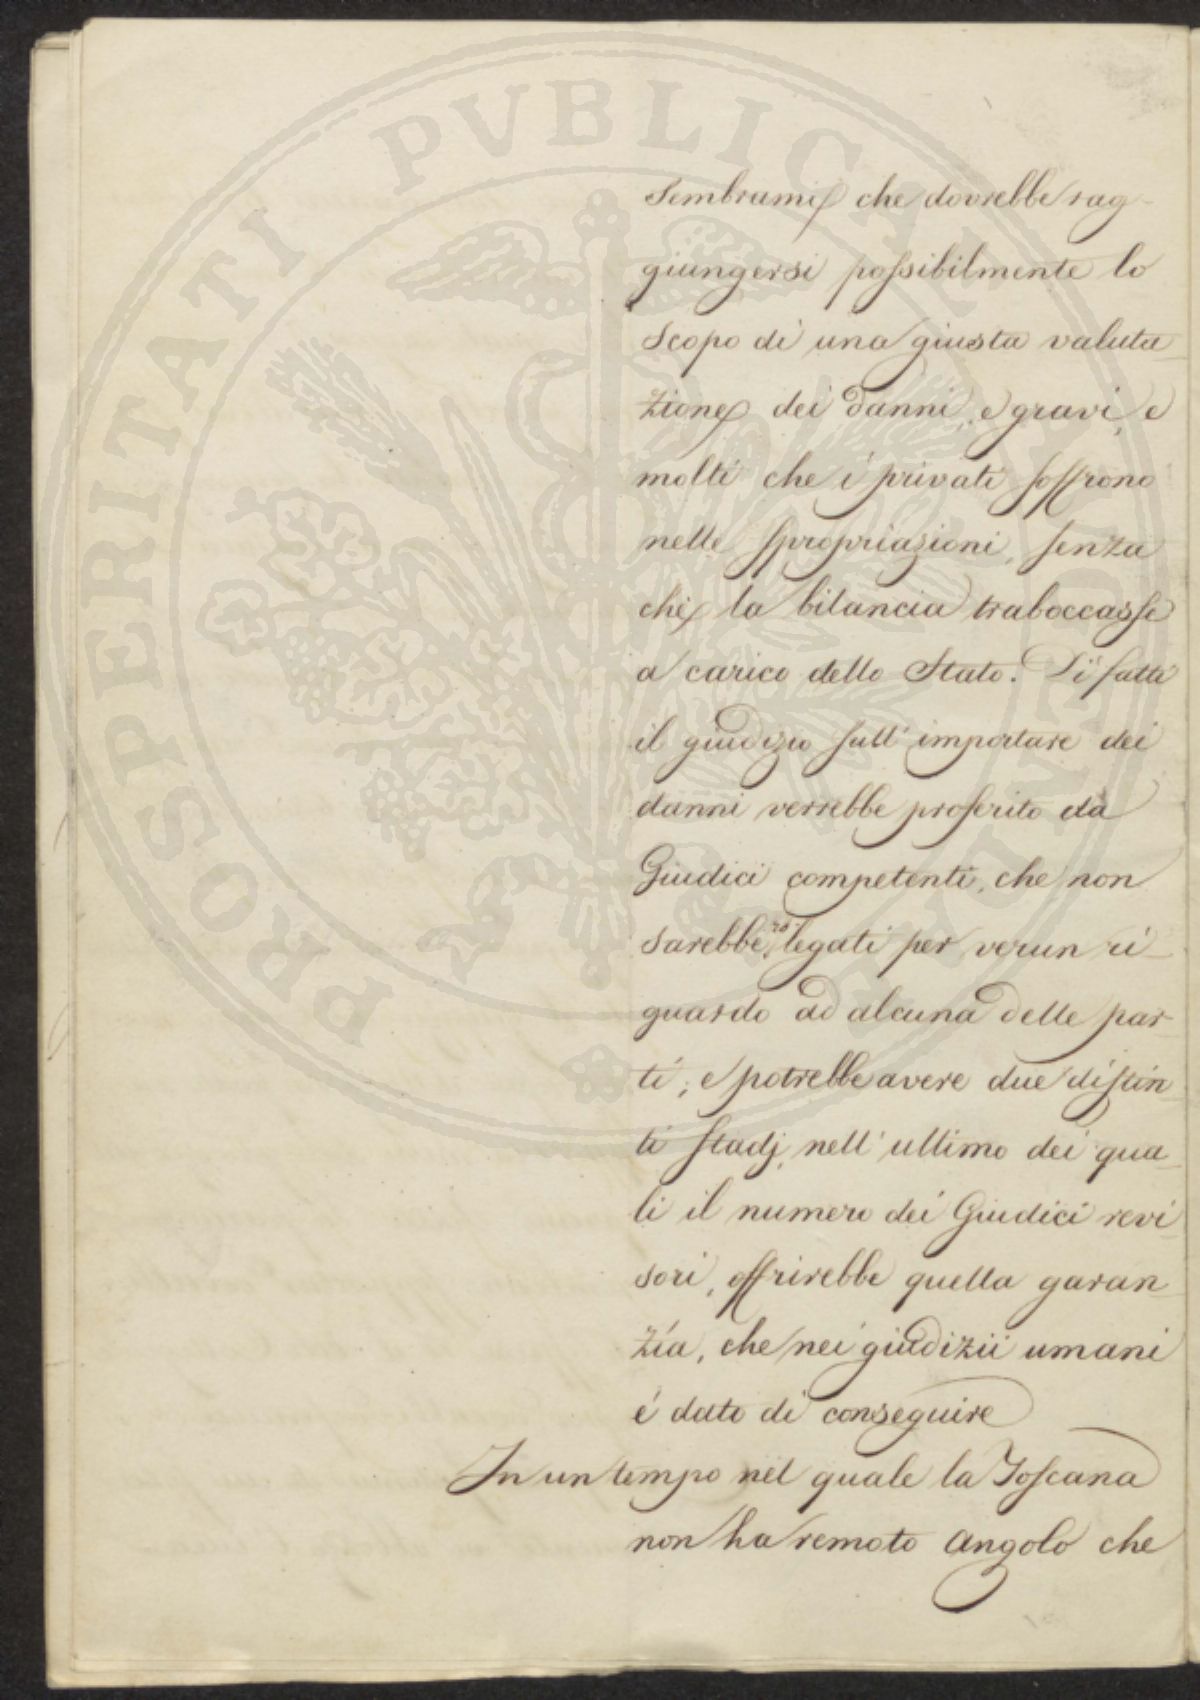 PROSPERITATI PVBLICAE AVGENDAE
Sembrami che dovrebbe rag-
giungersi possibilmente lo
scopo di una giusta valuta
zione dei danni, e gravi, e
molti che i privati soffrono
nelle spropriazioni, senza
che la bilancia traboccasse
a carico dello Stato. Di fatti
il giudizio sull' importare dei
danni verrebbe proferito da
Giudici competenti, che non
sarebbero legati per verun ri-
guardo ad alcuna delle par-
ti; e potrebbe avere due distin
ti stadj, nell' ultimo dei qua
li il numero dei Giudici revi
sori, offrirebbe quella garan
zía, che nei giudizii umani
é dato di conseguire
In un tempo nel quale la Toscana
non ha remoto angolo che